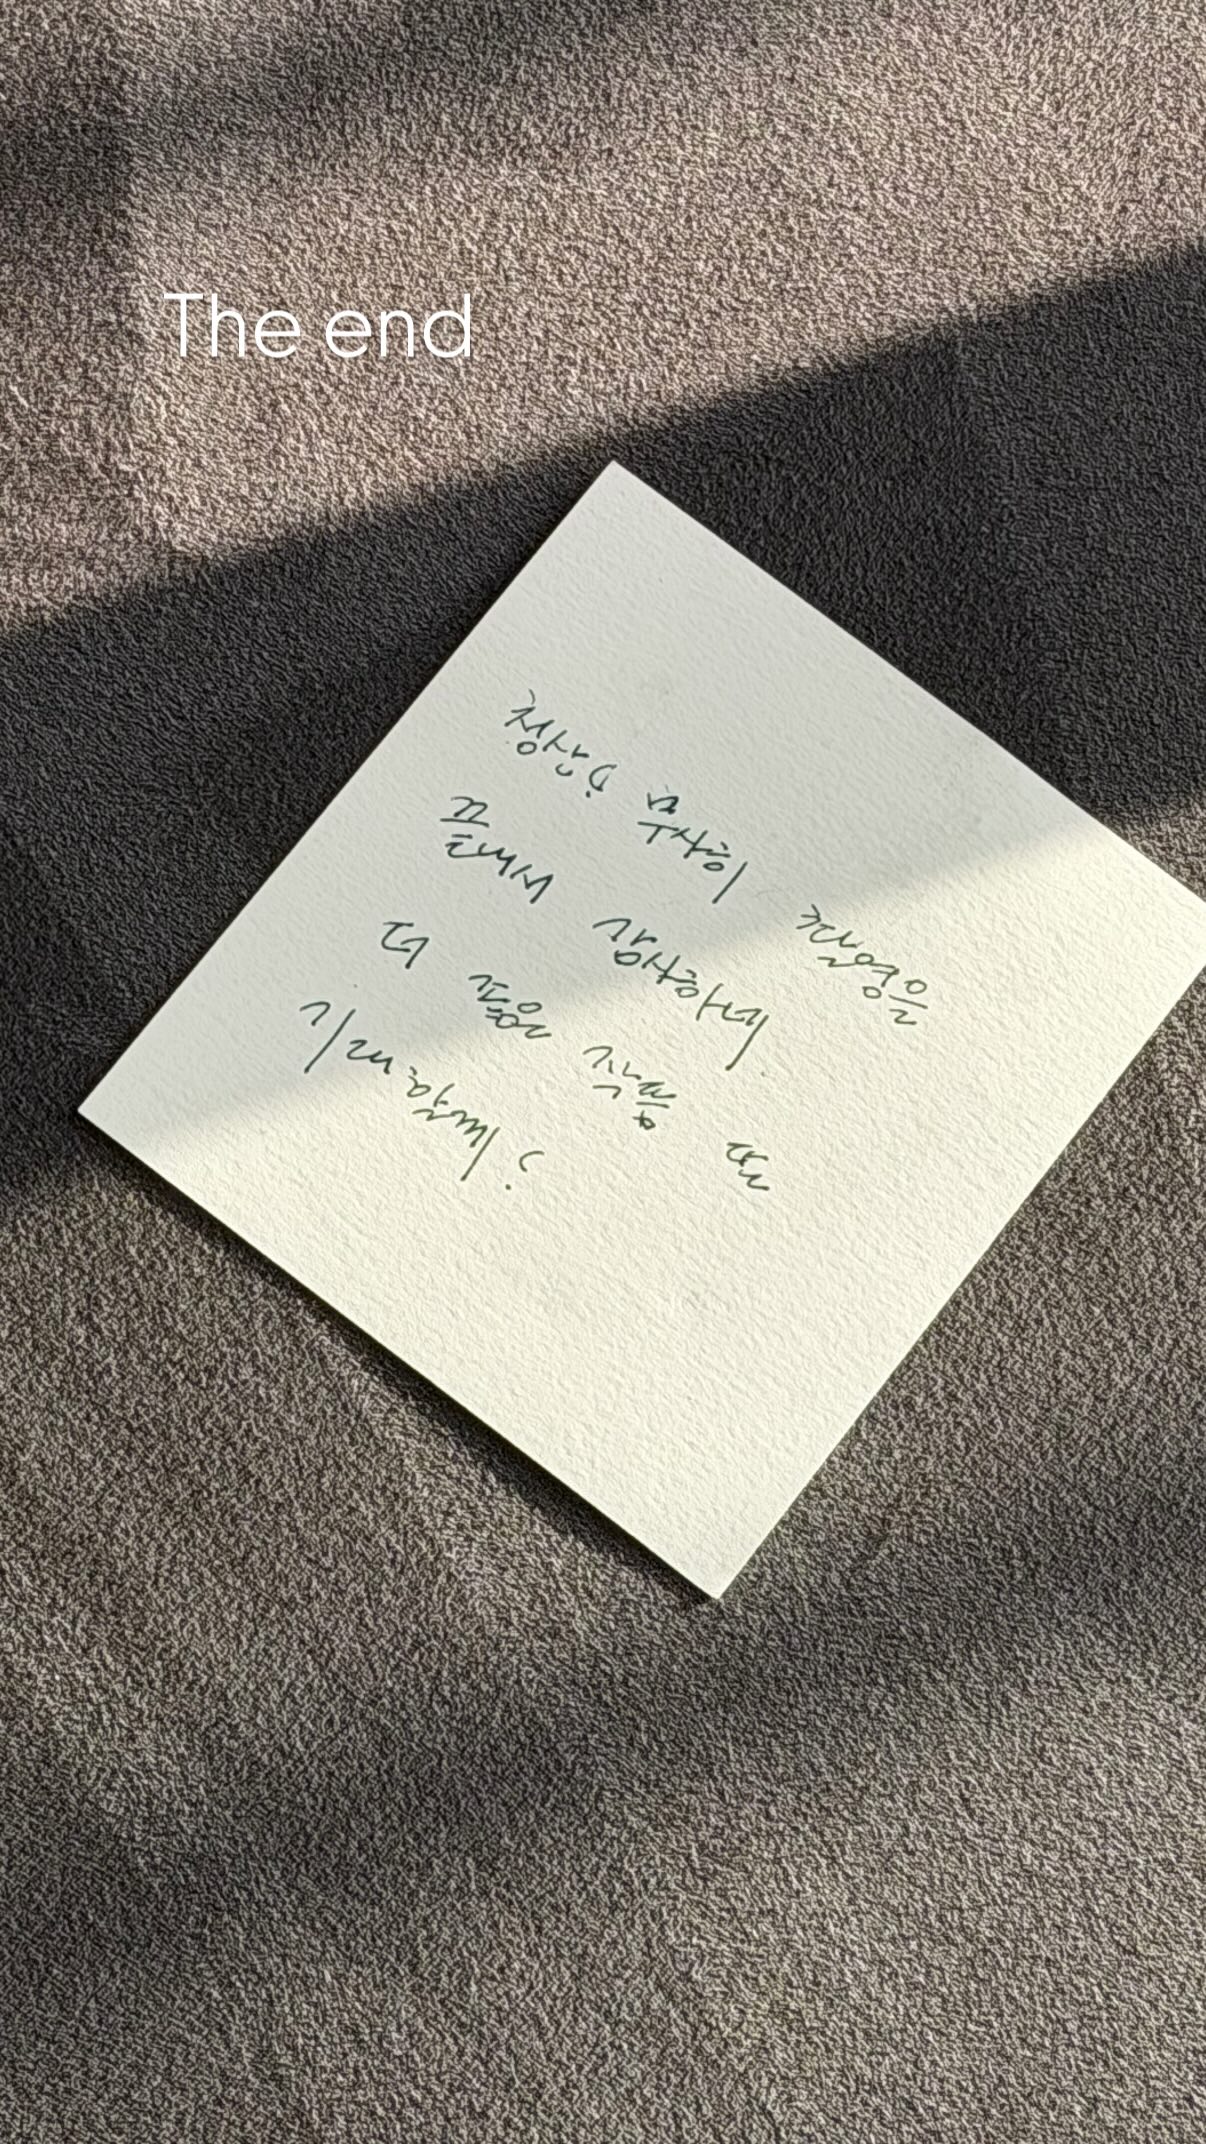 The end
청산! 무사히 촬영을
끝내서 감사하네
더 좋은 작품 또
기대할께?